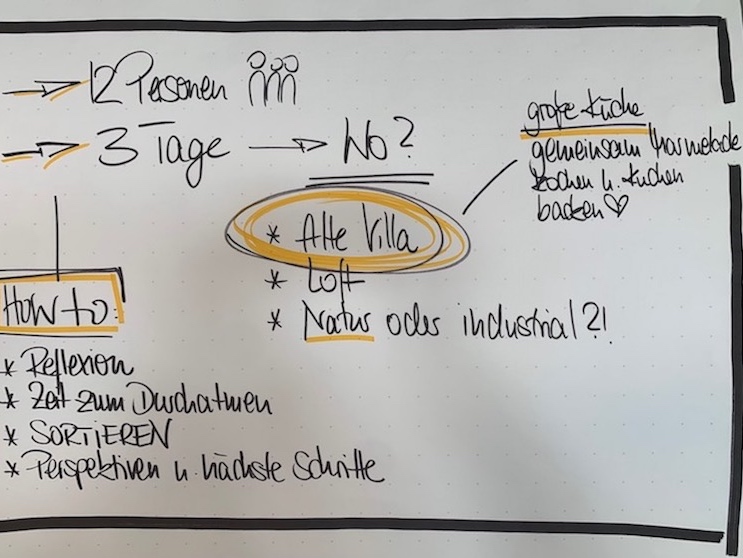 → 12 Personen
→ 3 Tage → Wo?
große Küche
gemeinsam Marmelade
kochen u. Kuchen
backen ♡
* Alte Villa
* Loft
* Natur oder industrial?!
How to:
* Reflexion
* Zeit zum Durchatmen
* SORTIEREN
* Perspektiven u. nächste Schritte